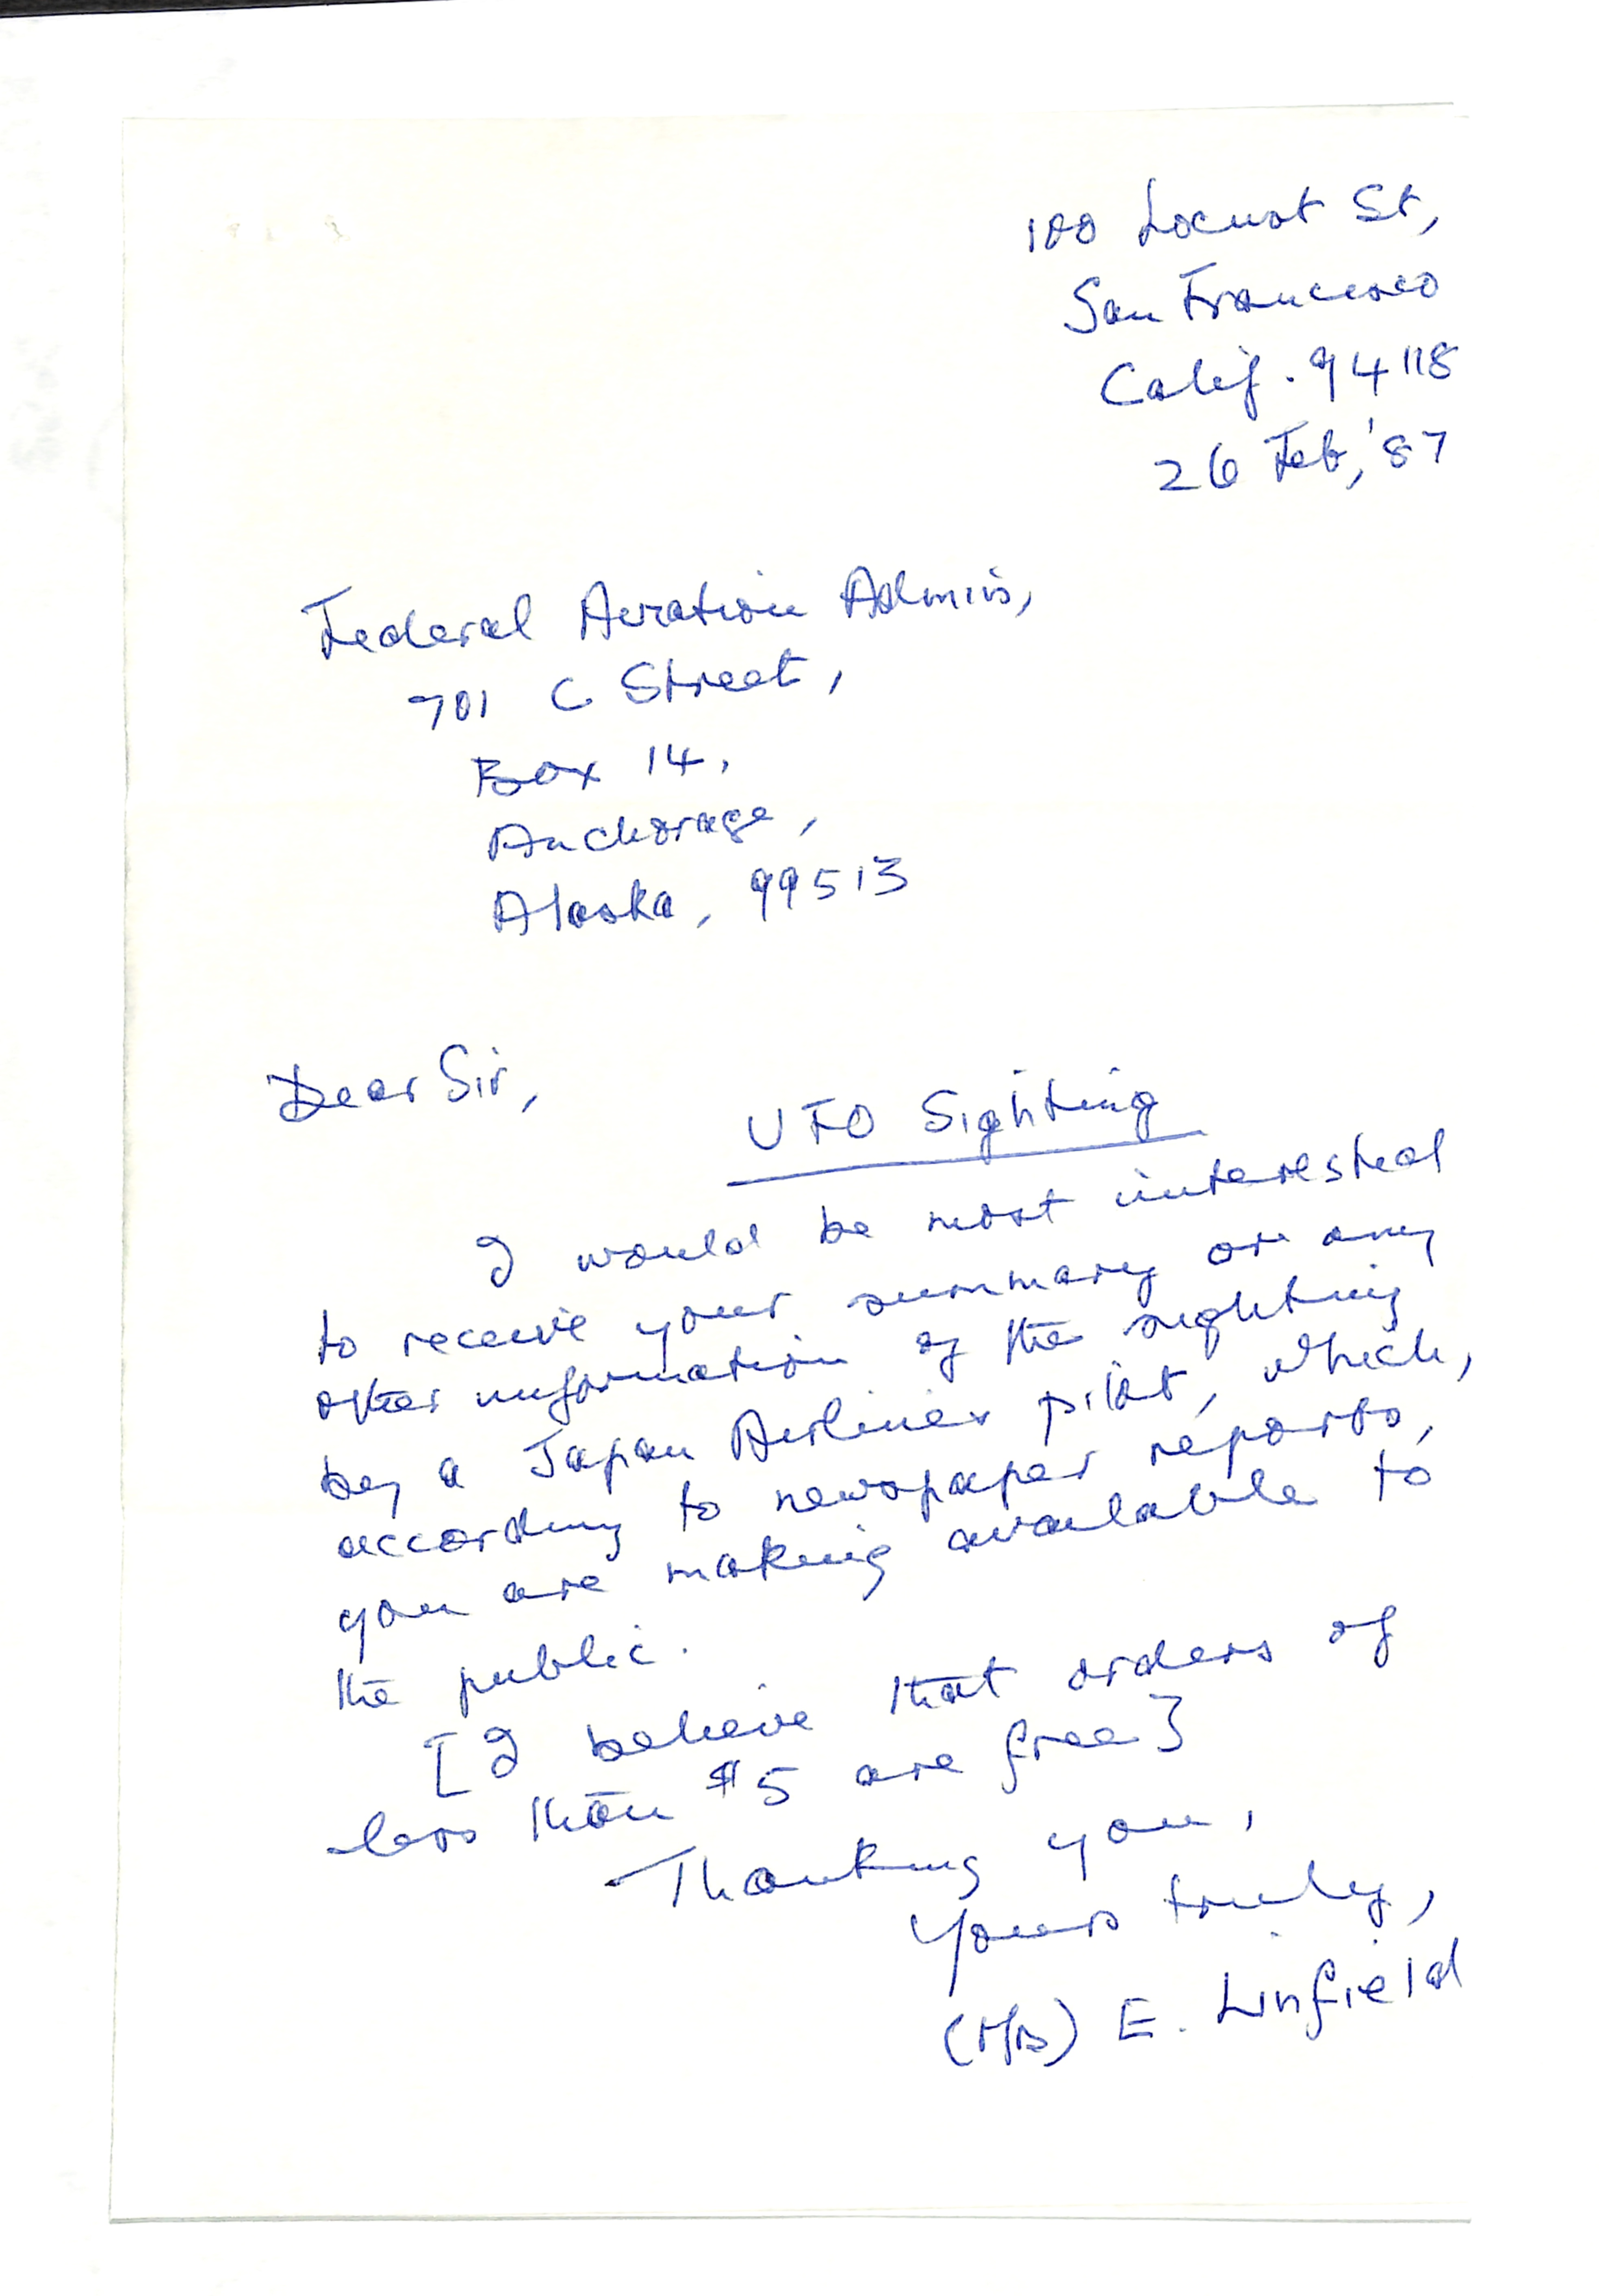 100 Locust St,
San Francisco
Calif. 94118
26 Feb, '87
Federal Aviation Admin,
701 C Street,
Box 14,
Anchorage,
Alaska, 99513
Dear Sir,
UFO Sighting
I would be most interested
to receive your summary or any
other information of the sighting
by a Japan Airlines pilot, which,
according to newspaper reports,
you are making available to
the public.
[I believe that orders of
less than $5 are free]
Thanking you,
Yours truly,
(Ms) E. Linfield